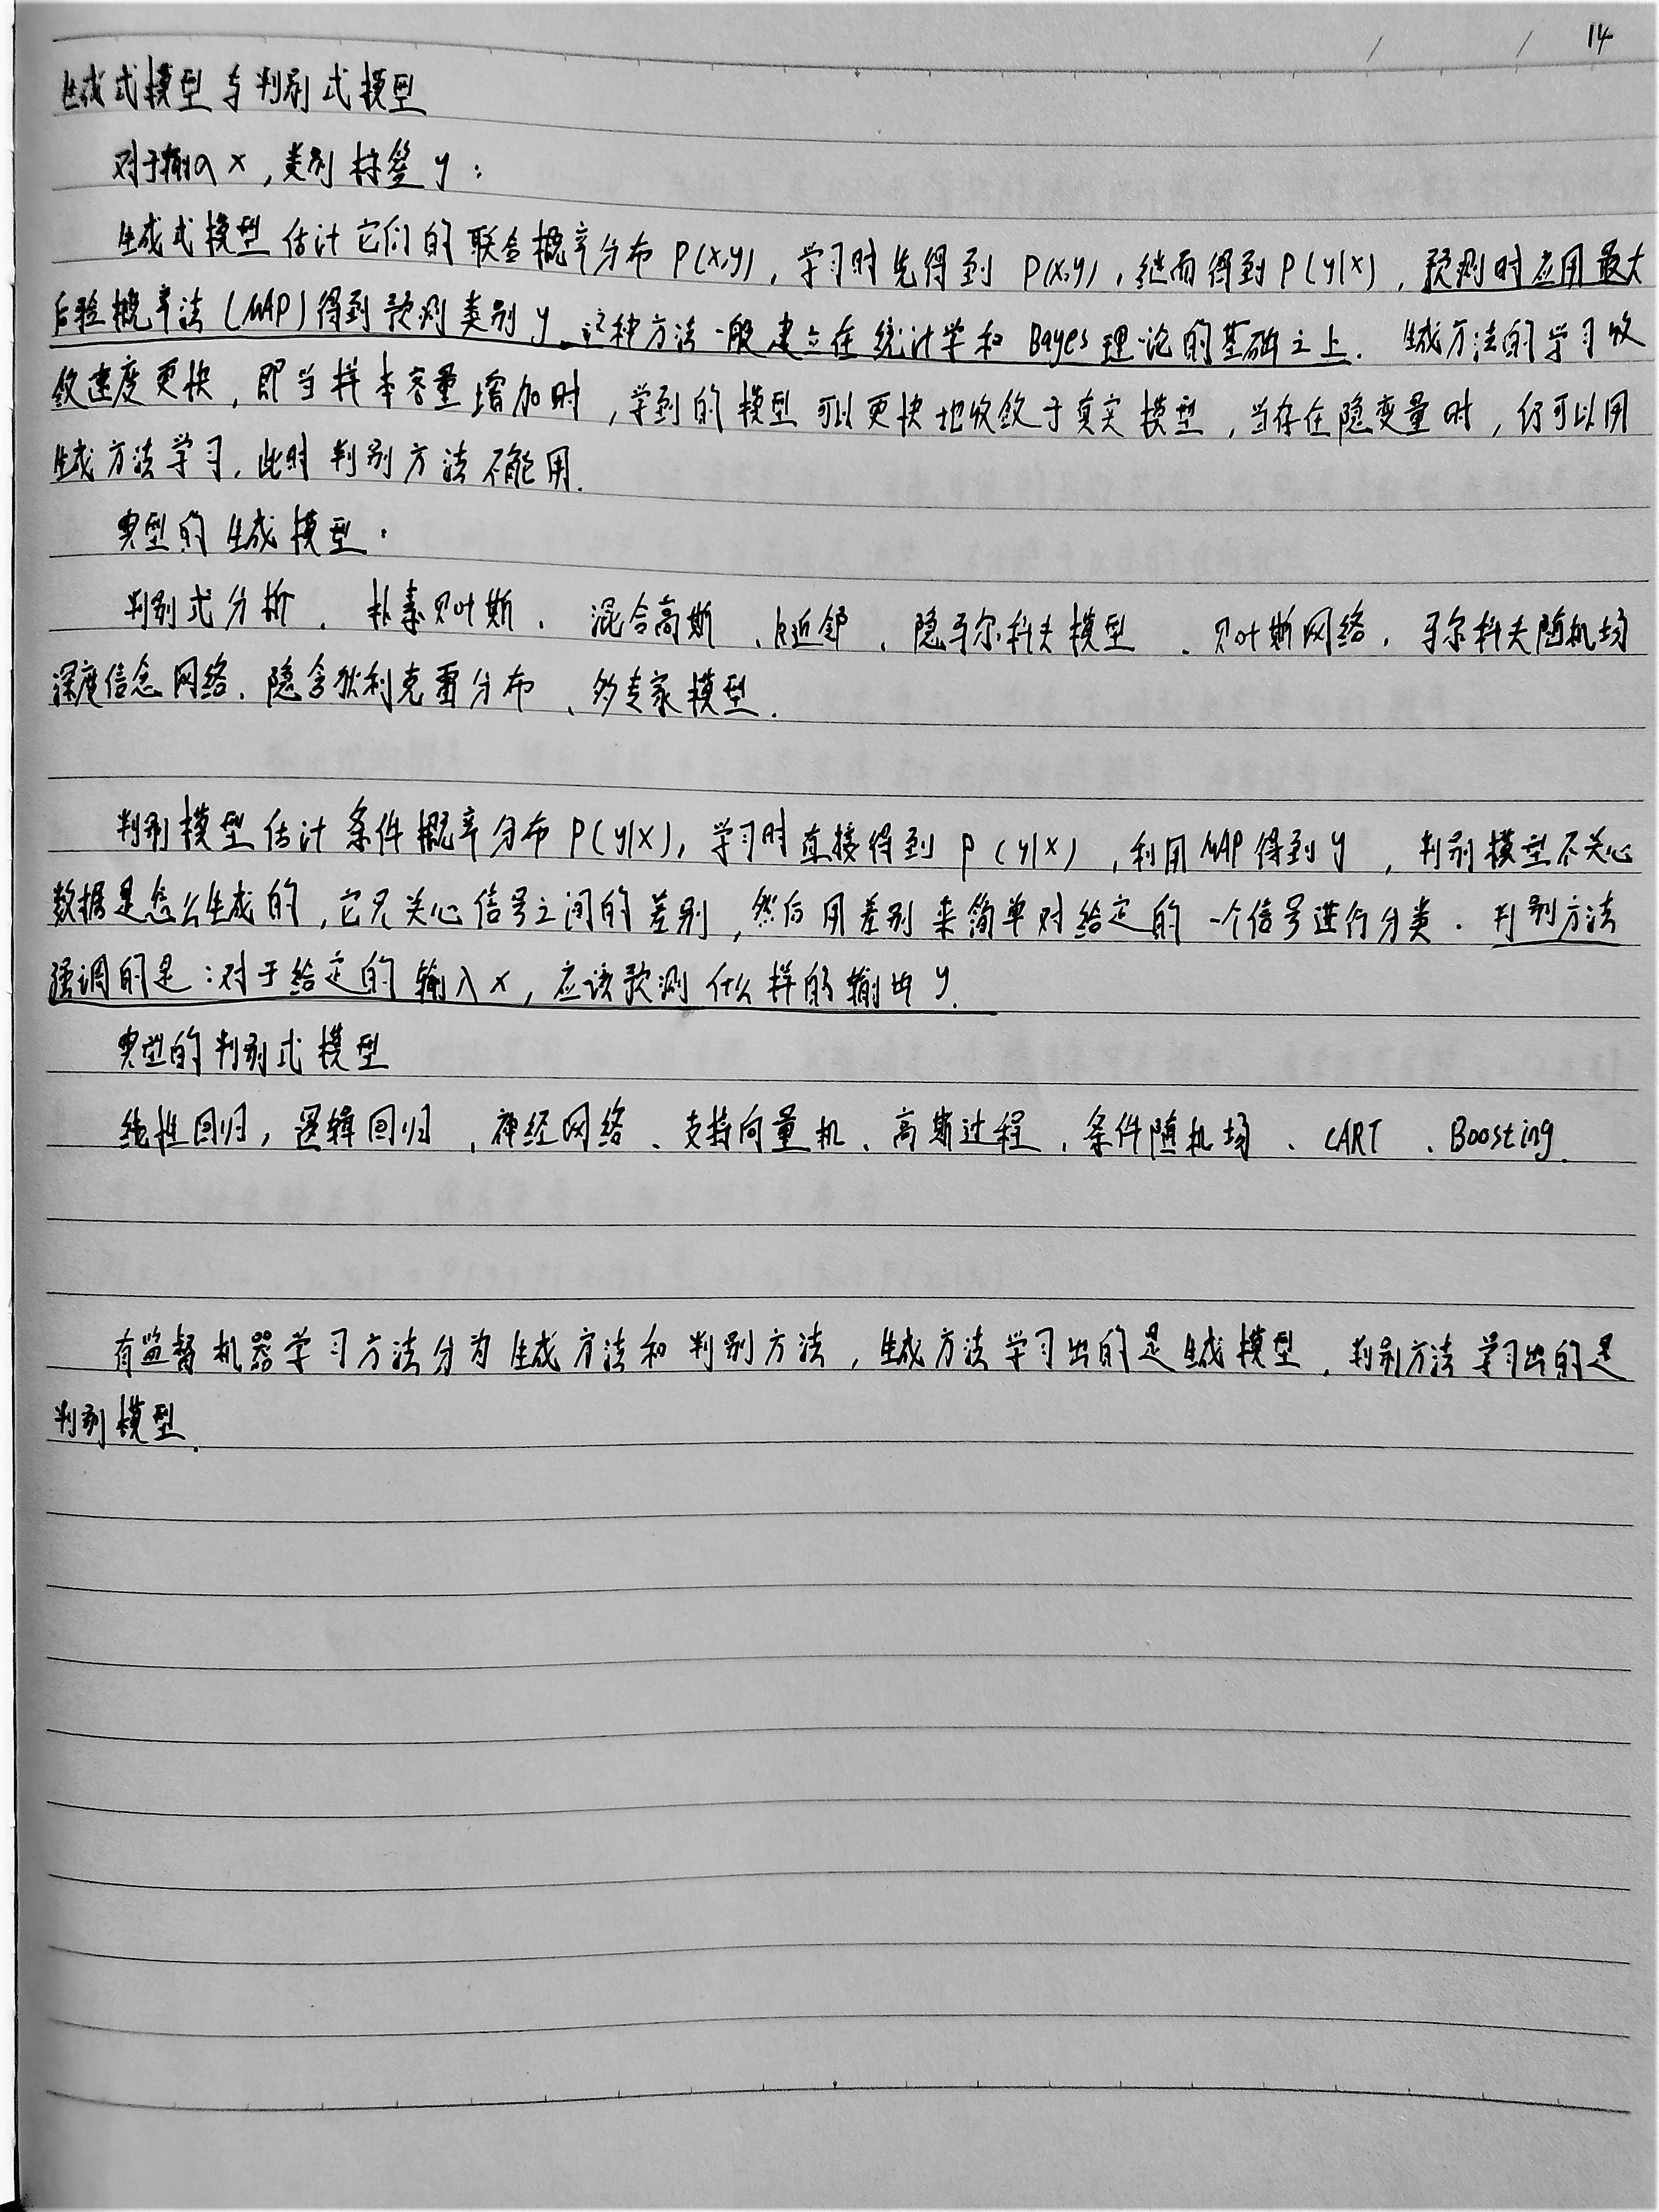 14
生成式模型与判别式模型
对于输入x,类别标签y:
生成式模型估计它们的联合概率分布P(x,y),学习时先得到P(x,y),继而得到P(y|x),预测时应用最大
后验概率法(MAP)得到预测类别y.这种方法一般建立在统计学和Bayes理论的基础之上.生成方法的学习收
敛速度更快,即当样本容量增加时,学到的模型可以更快地收敛于真实模型,当存在隐变量时,仍可以用
生成方法学习,此时判别方法不能用.
典型的生成模型:
判别式分析、朴素贝叶斯、混合高斯、k近邻、隐马尔科夫模型、贝叶斯网络、马尔科夫随机场
深度信念网络、隐含狄利克雷分布、多专家模型.
判别模型估计条件概率分布P(y|x),学习时直接得到P(y|x),利用MAP得到y,判别模型不关心
数据是怎么生成的,它只关心信号之间的差别,然后用差别来简单对给定的一个信号进行分类.判别方法
强调的是:对于给定的输入x,应该预测什么样的输出y.
典型的判别式模型
线性回归,逻辑回归,神经网络、支持向量机、高斯过程、条件随机场、CART、Boosting.
有监督机器学习方法分为生成方法和判别方法,生成方法学习出的是生成模型,判别方法学习出的是
判别模型.